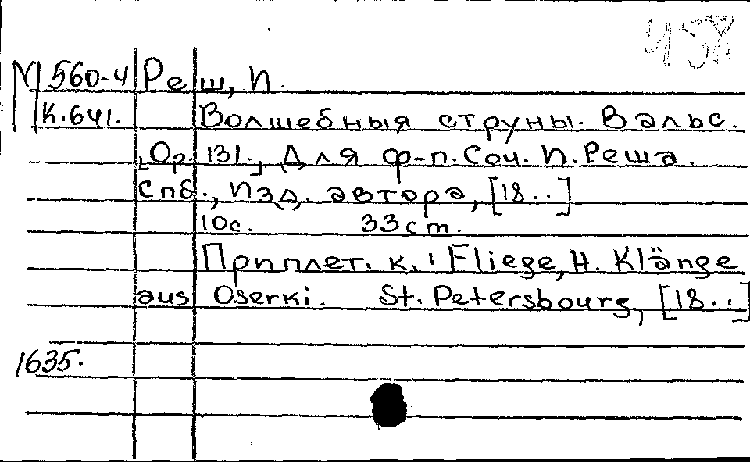 458
М 560-4 Реш, И.
К.641. Волшебныя струны. Вальс.
[Ор. 131.], Для ф-п. Соч. И. Реша.
Спб., Изд. автора, [18..]
10с. 33 cm.
Приплет. к.: Fliege, H. Klänge
aus Oserki. St. Petersbourg, [18..]
1635.